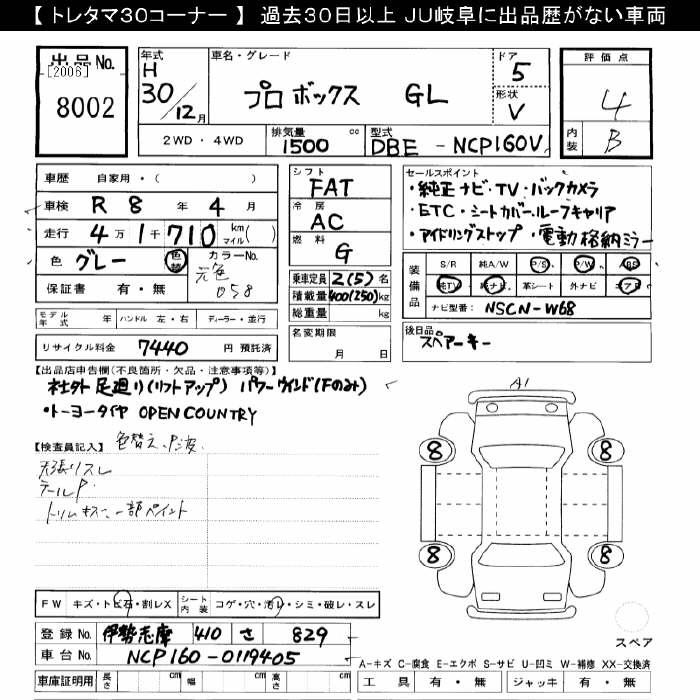 【 トレタマ30コーナー 】 過去30日以上 JU岐阜に出品歴がない車両
出品No.
[2006]
8002
年式 H 30/12月
車名・グレード プロボックス GL
ドア 5
形状 V
評価点 4
内装 B
2WD ・ 4WD
排気量 1500 cc
型式 DBE - NCP160V
車歴 自家用・( )
車検 R 8 年 4 月
走行 4万1千710 km マイル( )
色 グレー 色替 カラーNo. 元色 058
保証書 有・無
シフト FAT
冷房 AC
燃料 G
乗車定員 2(5)名
積載量 400(250)kg
総重量 kg
セールスポイント
・純正ナビ・TV・バックカメラ
・ETC・シートカバー・ルーフキャリア
・アイドリングストップ ・電動格納ミラー
装備品 S/R 純A/W P/S P/W ABS
純TV 純ナビ 革シート 外ナビ エアB
ナビ型番: NSCN-W68
モデル年式 年 ハンドル 左・右 ディーラー・並行
リサイクル料金 7440 円 預託済
名変期限 月 日
後日品 スペアーキー
【出品店申告欄(不良箇所・欠品・注意事項等)】
社外 足廻り(リフトアップ) パワーウインド(Fのみ)
・トーヨータイヤ OPEN COUNTRY
【検査員記入】 色替え、
天張リスレ
テールP
トリムキズ 一部ペイント
A1
8 8
8 8
スペア
FW キズ・トビ石・割レX シート内装 コゲ・穴・汚レ・シミ・破レ・スレ
登録No. 伊勢志摩 410 さ 829
車台No. NCP160-0119405
車庫証明用 長さ cm 幅 cm 高さ cm
A-キズ C-腐食 E-エクボ S-サビ U-凹ミ W-補修 XX-交換済
工具 有・無 ジャッキ 有・無